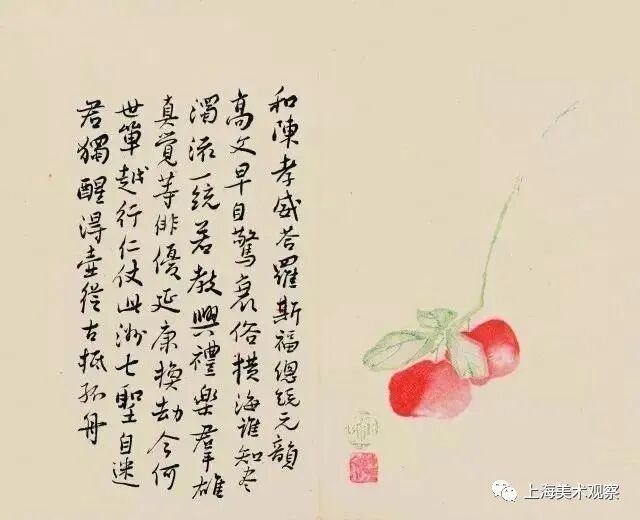 和陳孝威答羅斯福總統元韻
高文早自驚衰俗橫海誰知盡
濁流一統若教興禮樂羣雄
真覺等俳優延康換劫今何
世箄越行仁仗此洲七聖自迷
君獨醒得壺從古抵孤舟
上海美术观察